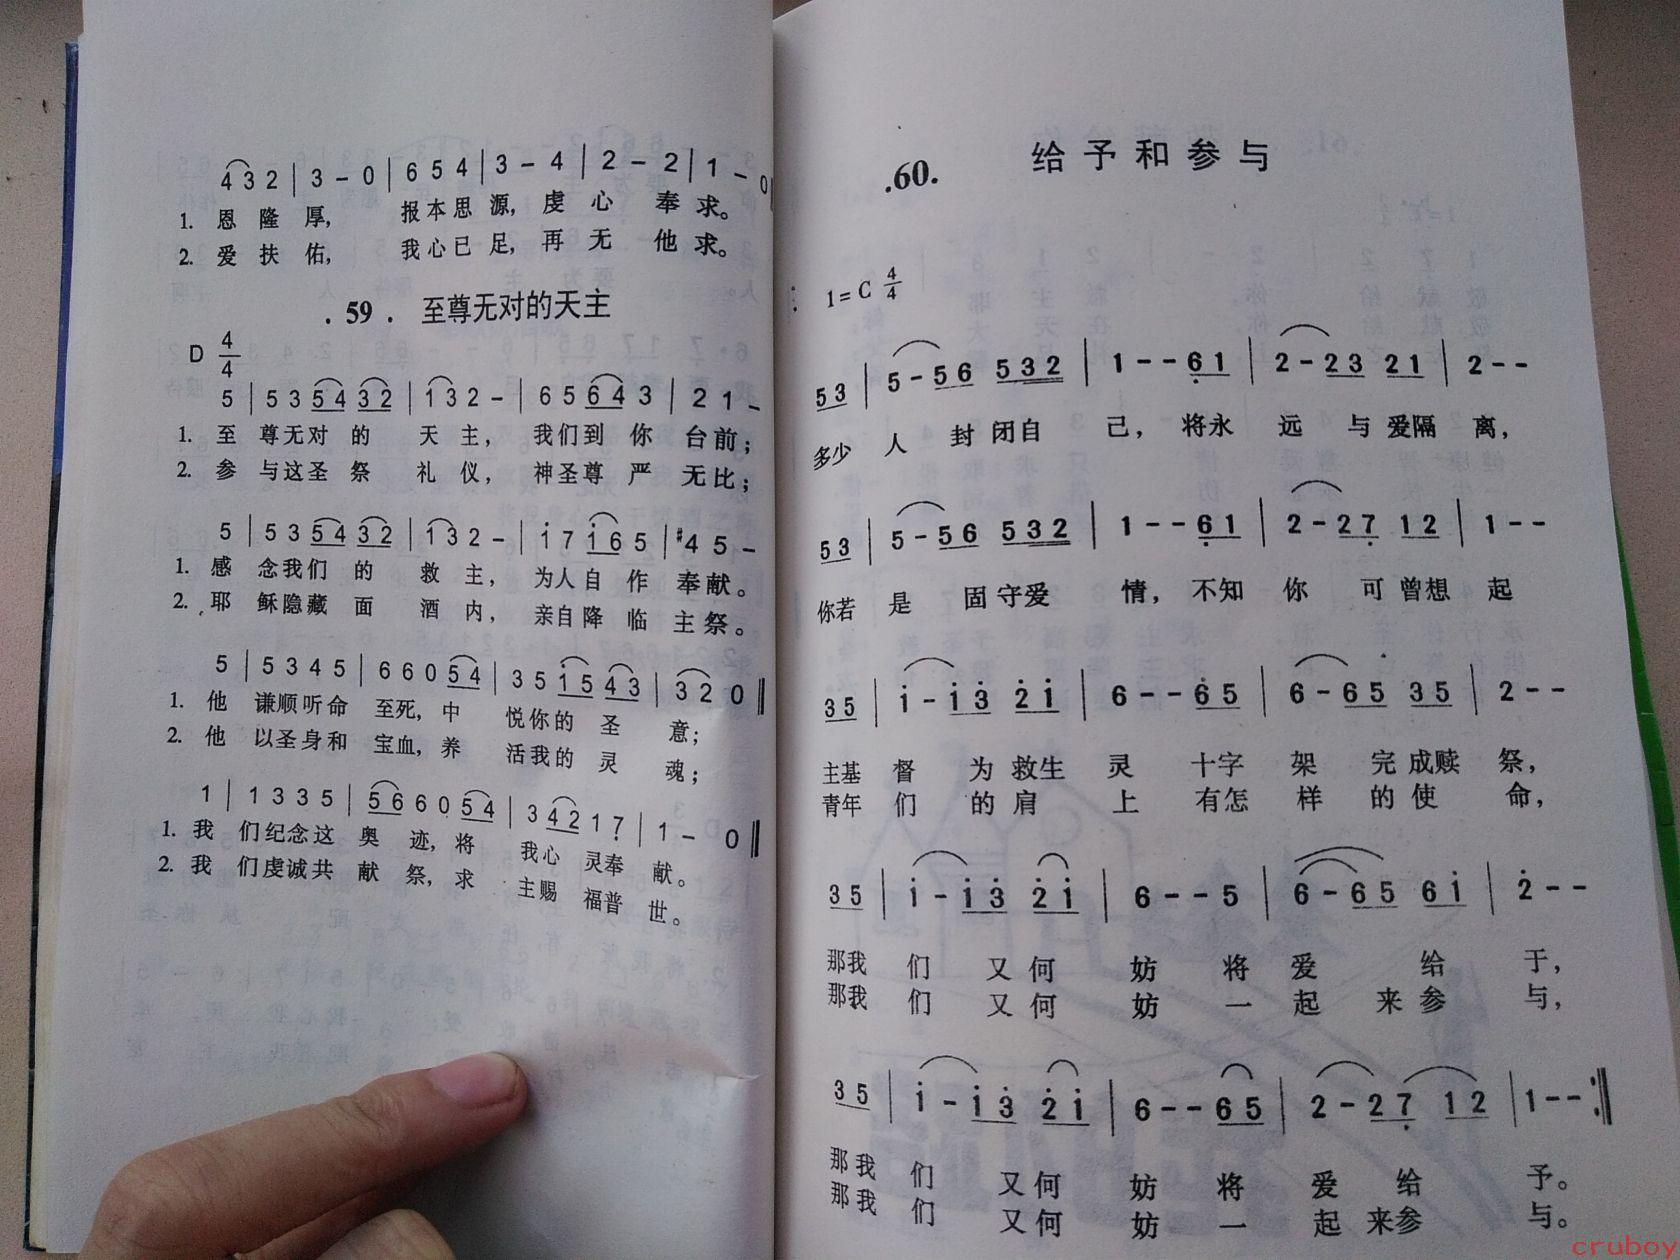 4 3 2 | 3 – 0 | 6 5 4 | 3 – 4 | 2 – 2 | 1 – 0
1. 恩 隆 厚, 报本思 源, 虔 心 奉 求。
2. 爱 扶 佑, 我心已 足, 再 无 他 求。
. 59 . 至尊无对的天主
D 4/4
5 | 5 3 5 4 3 2 | 1 3 2 – | 6 5 6 4 3 | 2 1 –
1. 至 尊无对 的 天 主, 我们到 你 台前;
2. 参 与这圣 祭 礼 仪, 神圣尊 严 无比;
5 | 5 3 5 4 3 2 | 1 3 2 – | i 7 i 6 5 | #4 5 –
1. 感 念我们 的 救 主, 为人自 作 奉献。
2. 耶 稣隐藏 面 酒 内, 亲自降 临 主祭。
5 | 5 3 4 5 | 6 6 0 5 4 | 3 5 i 5 4 3 | 3 2 0 ‖
1. 他 谦顺听命 至死, 中 悦你的 圣 意;
2. 他 以圣身和 宝血, 养 活我的 灵 魂;
1 | 1 3 3 5 | 5 6 6 0 5 4 | 3 4 2 1 7 | 1 – 0 ‖
1. 我 们纪念这 奥 迹, 将 我心 灵奉 献。
2. 我 们虔诚共 献 祭, 求 主赐 福普 世。
.60. 给予和参与
1=C 4/4
5 3 | 5 – 5 6 5 3 2 | 1 – – 6 1 | 2 – 2 3 2 1 | 2 – –
多少 人 封 闭自 己, 将永 远 与 爱隔 离,
5 3 | 5 – 5 6 5 3 2 | 1 – – 6 1 | 2 – 2 7 1 2 | 1 – –
你若 是 固 守爱 情, 不知 你 可 曾想 起
3 5 | i – i 3 2 i | 6 – – 6 5 | 6 – 6 5 3 5 | 2 – –
主基 督 为 救生 灵 十字 架 完 成赎 祭,
青年 们 的 肩 上 有怎 样 的 使 命,
3 5 | i – i 3 2 i | 6 – – 5 | 6 – 6 5 6 i | 2 – –
那我 们 又 何 妨 将 爱 给 于,
那我 们 又 何 妨 一 起 来 参 与,
3 5 | i – i 3 2 i | 6 – – 6 5 | 2 – 2 7 1 2 | 1 – – :‖
那我 们 又 何 妨 将 爱 给 予。
那我 们 又 何 妨 一 起 来参 与。
cruboy